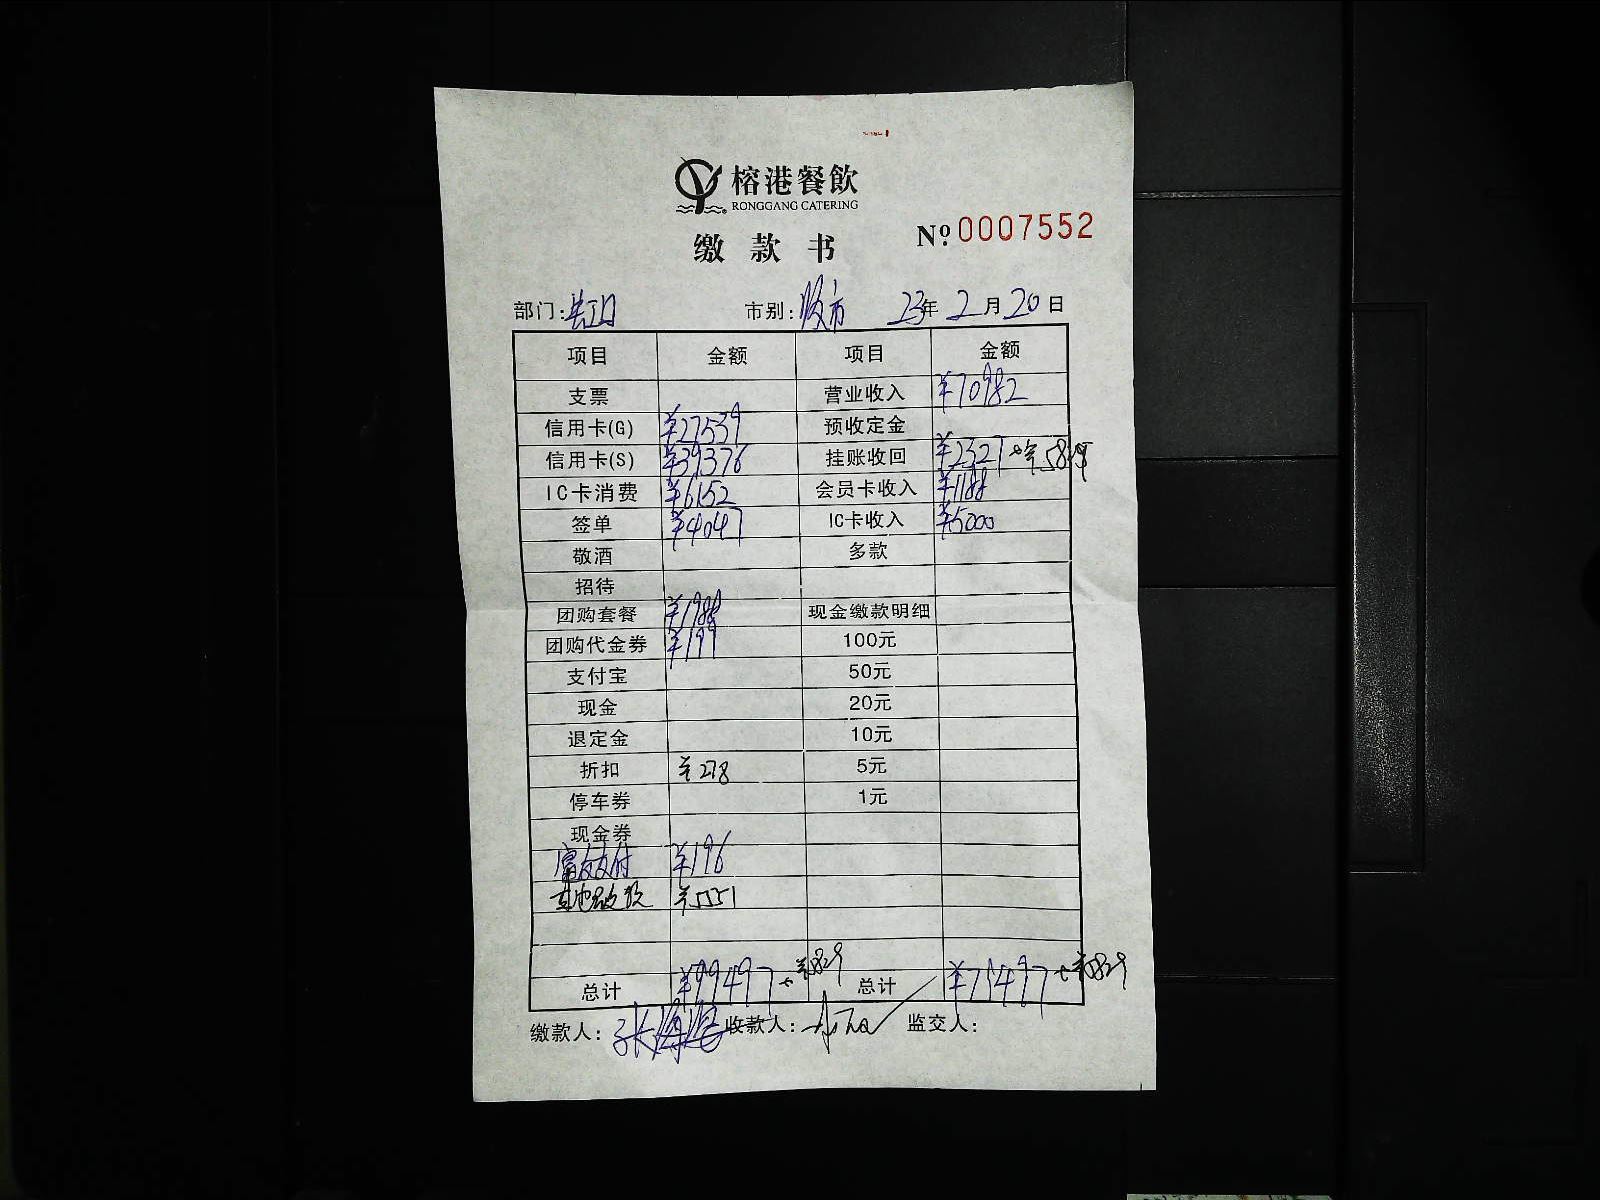 榕港餐飲
RONGGANG CATERING
缴款书
Nº: 0007552
部门: 市别: 23年 2月 20日
项目 金额 项目 金额
支票 营业收入 ¥70982
信用卡(G) ¥27539 预收定金
信用卡(S) ¥39376 挂账收回 ¥2327
IC卡消费 ¥6152 会员卡收入 ¥1188
签单 ¥4047 IC卡收入 ¥5000
敬酒 多款
招待
团购套餐 现金缴款明细
团购代金券 ¥199 100元
支付宝 50元
现金 20元
退定金 10元
折扣 ¥278 5元
停车券 1元
现金券
¥196
总计 总计
缴款人: 收款人: 监交人: